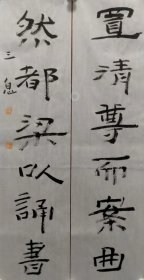 置清尊而案曲
然都梁以誦書
三息